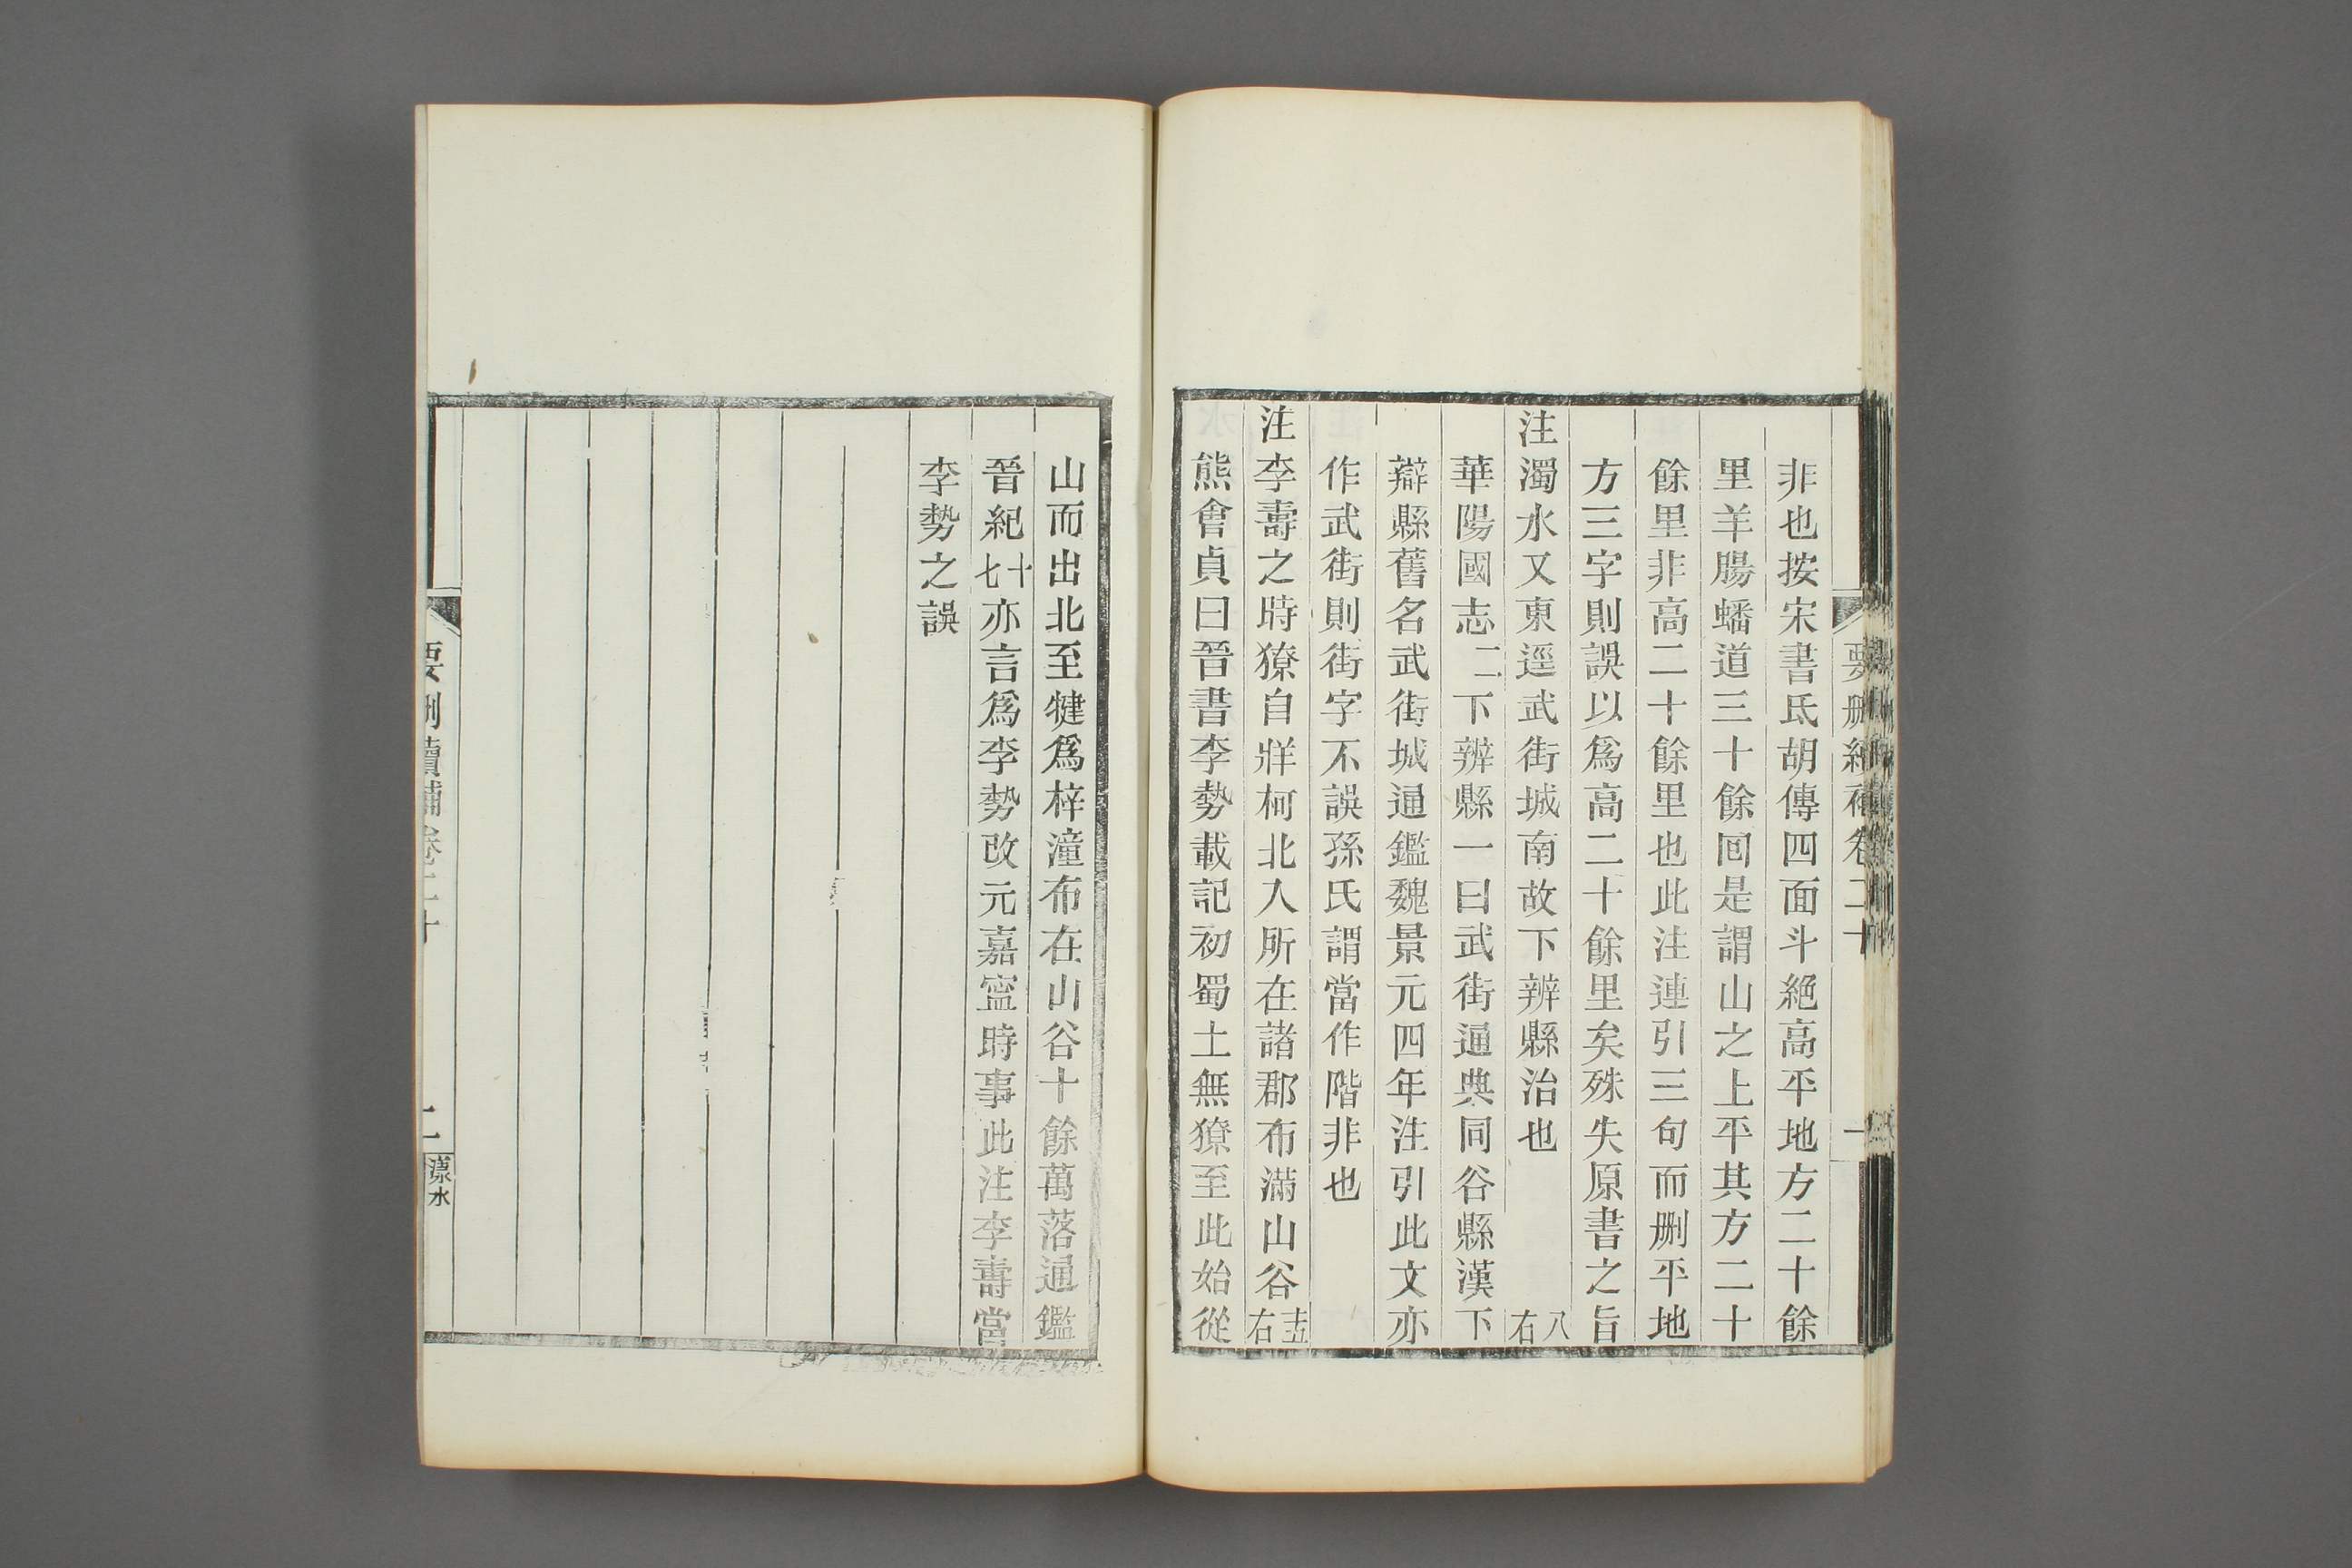 非也按宋書氐胡傳四面斗絕高平地方二十餘
里羊腸蟠道三十餘回是謂山之上平其方二十
餘里非高二十餘里也此注連引三句而刪平地
方三字則誤以爲高二十餘里矣殊失原書之旨
注濁水又東逕武街城南故下辨縣治也 八右
華陽國志二下辨縣一曰武街通典同谷縣漢下
辯縣舊名武街城通鑑魏景元四年注引此文亦
作武街則街字不誤孫氏謂當作階非也
注李壽之時獠自牂柯北入所在諸郡布滿山谷 十五右
熊會貞曰晉書李勢載記初蜀土無獠至此始從
山而出北至犍爲梓潼布在山谷十餘萬落通鑑
晉紀十七亦言爲李勢改元嘉寧時事此注李壽當
李勢之誤
要刪續補卷二十
二
漾水